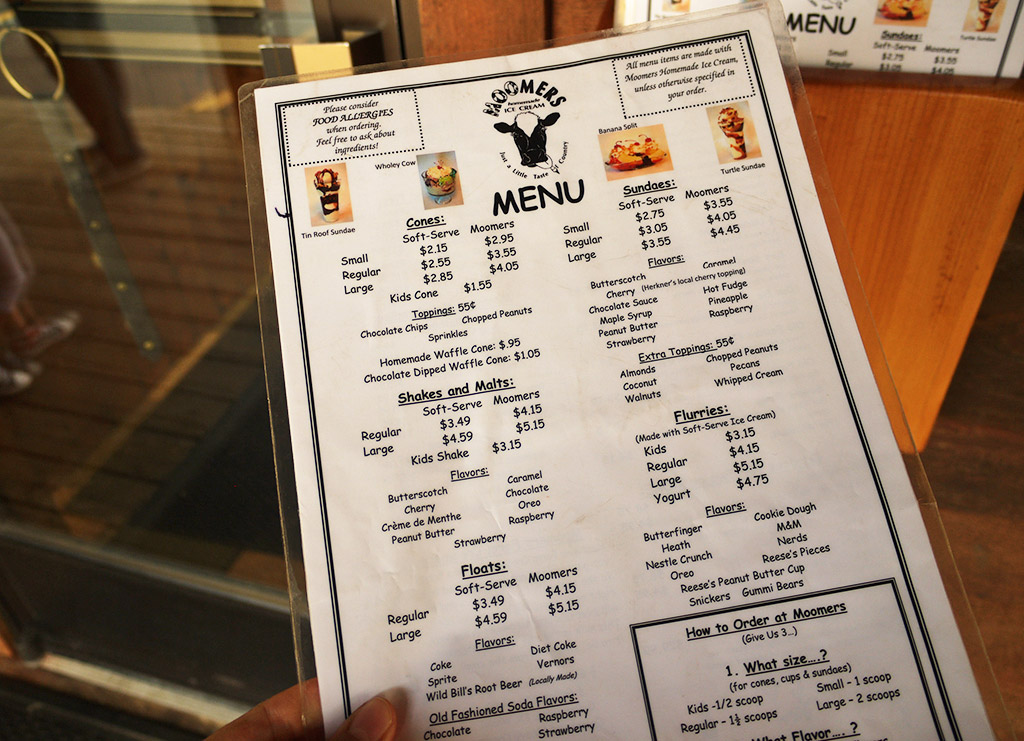 Please consider
FOOD ALLERGIES
when ordering.
Feel free to ask about
ingredients!
MOOMERS
homemade
ICE CREAM
Just a Little Taste of Country
MENU
All menu items are made with
Moomers Homemade Ice Cream,
unless otherwise specified in
your order.
Tin Roof Sundae
Wholey Cow
Banana Split
Turtle Sundae
Cones:
Soft-Serve Moomers
Small $2.15 $2.95
Regular $2.55 $3.55
Large $2.85 $4.05
Kids Cone $1.55
Toppings: 55¢
Chocolate Chips Chopped Peanuts
Sprinkles
Homemade Waffle Cone: $.95
Chocolate Dipped Waffle Cone: $1.05
Shakes and Malts:
Soft-Serve Moomers
Regular $3.49 $4.15
Large $4.59 $5.15
Kids Shake $3.15
Flavors:
Butterscotch Caramel
Cherry Chocolate
Crème de Menthe Oreo
Peanut Butter Raspberry
Strawberry
Floats:
Soft-Serve Moomers
Regular $3.49 $4.15
Large $4.59 $5.15
Flavors:
Coke Diet Coke
Sprite Vernors
Wild Bill's Root Beer (Locally Made)
Old Fashioned Soda Flavors:
Chocolate Raspberry
Strawberry
Sundaes:
Soft-Serve Moomers
Small $2.75 $3.55
Regular $3.05 $4.05
Large $3.55 $4.45
Flavors:
Butterscotch Caramel
Cherry (Herkner's local cherry topping)
Chocolate Sauce Hot Fudge
Maple Syrup Pineapple
Peanut Butter Raspberry
Strawberry
Extra Toppings: 55¢
Almonds Chopped Peanuts
Coconut Pecans
Walnuts Whipped Cream
Flurries:
(Made with Soft-Serve Ice Cream)
Kids $3.15
Regular $4.15
Large $5.15
Yogurt $4.75
Flavors:
Butterfinger Cookie Dough
Heath M&M
Nestle Crunch Nerds
Oreo Reese's Pieces
Reese's Peanut Butter Cup
Snickers Gummi Bears
How to Order at Moomers
(Give Us 3...)
1. What size....?
(for cones, cups & sundaes)
Kids -1/2 scoop Small - 1 scoop
Regular - 1½ scoops Large - 2 scoops
What Flavor.... ?
MENU
Sundaes:
Soft-Serve Moomers
Small $2.75 $3.55
Regular $3.05 $4.05
Turtle Sundae